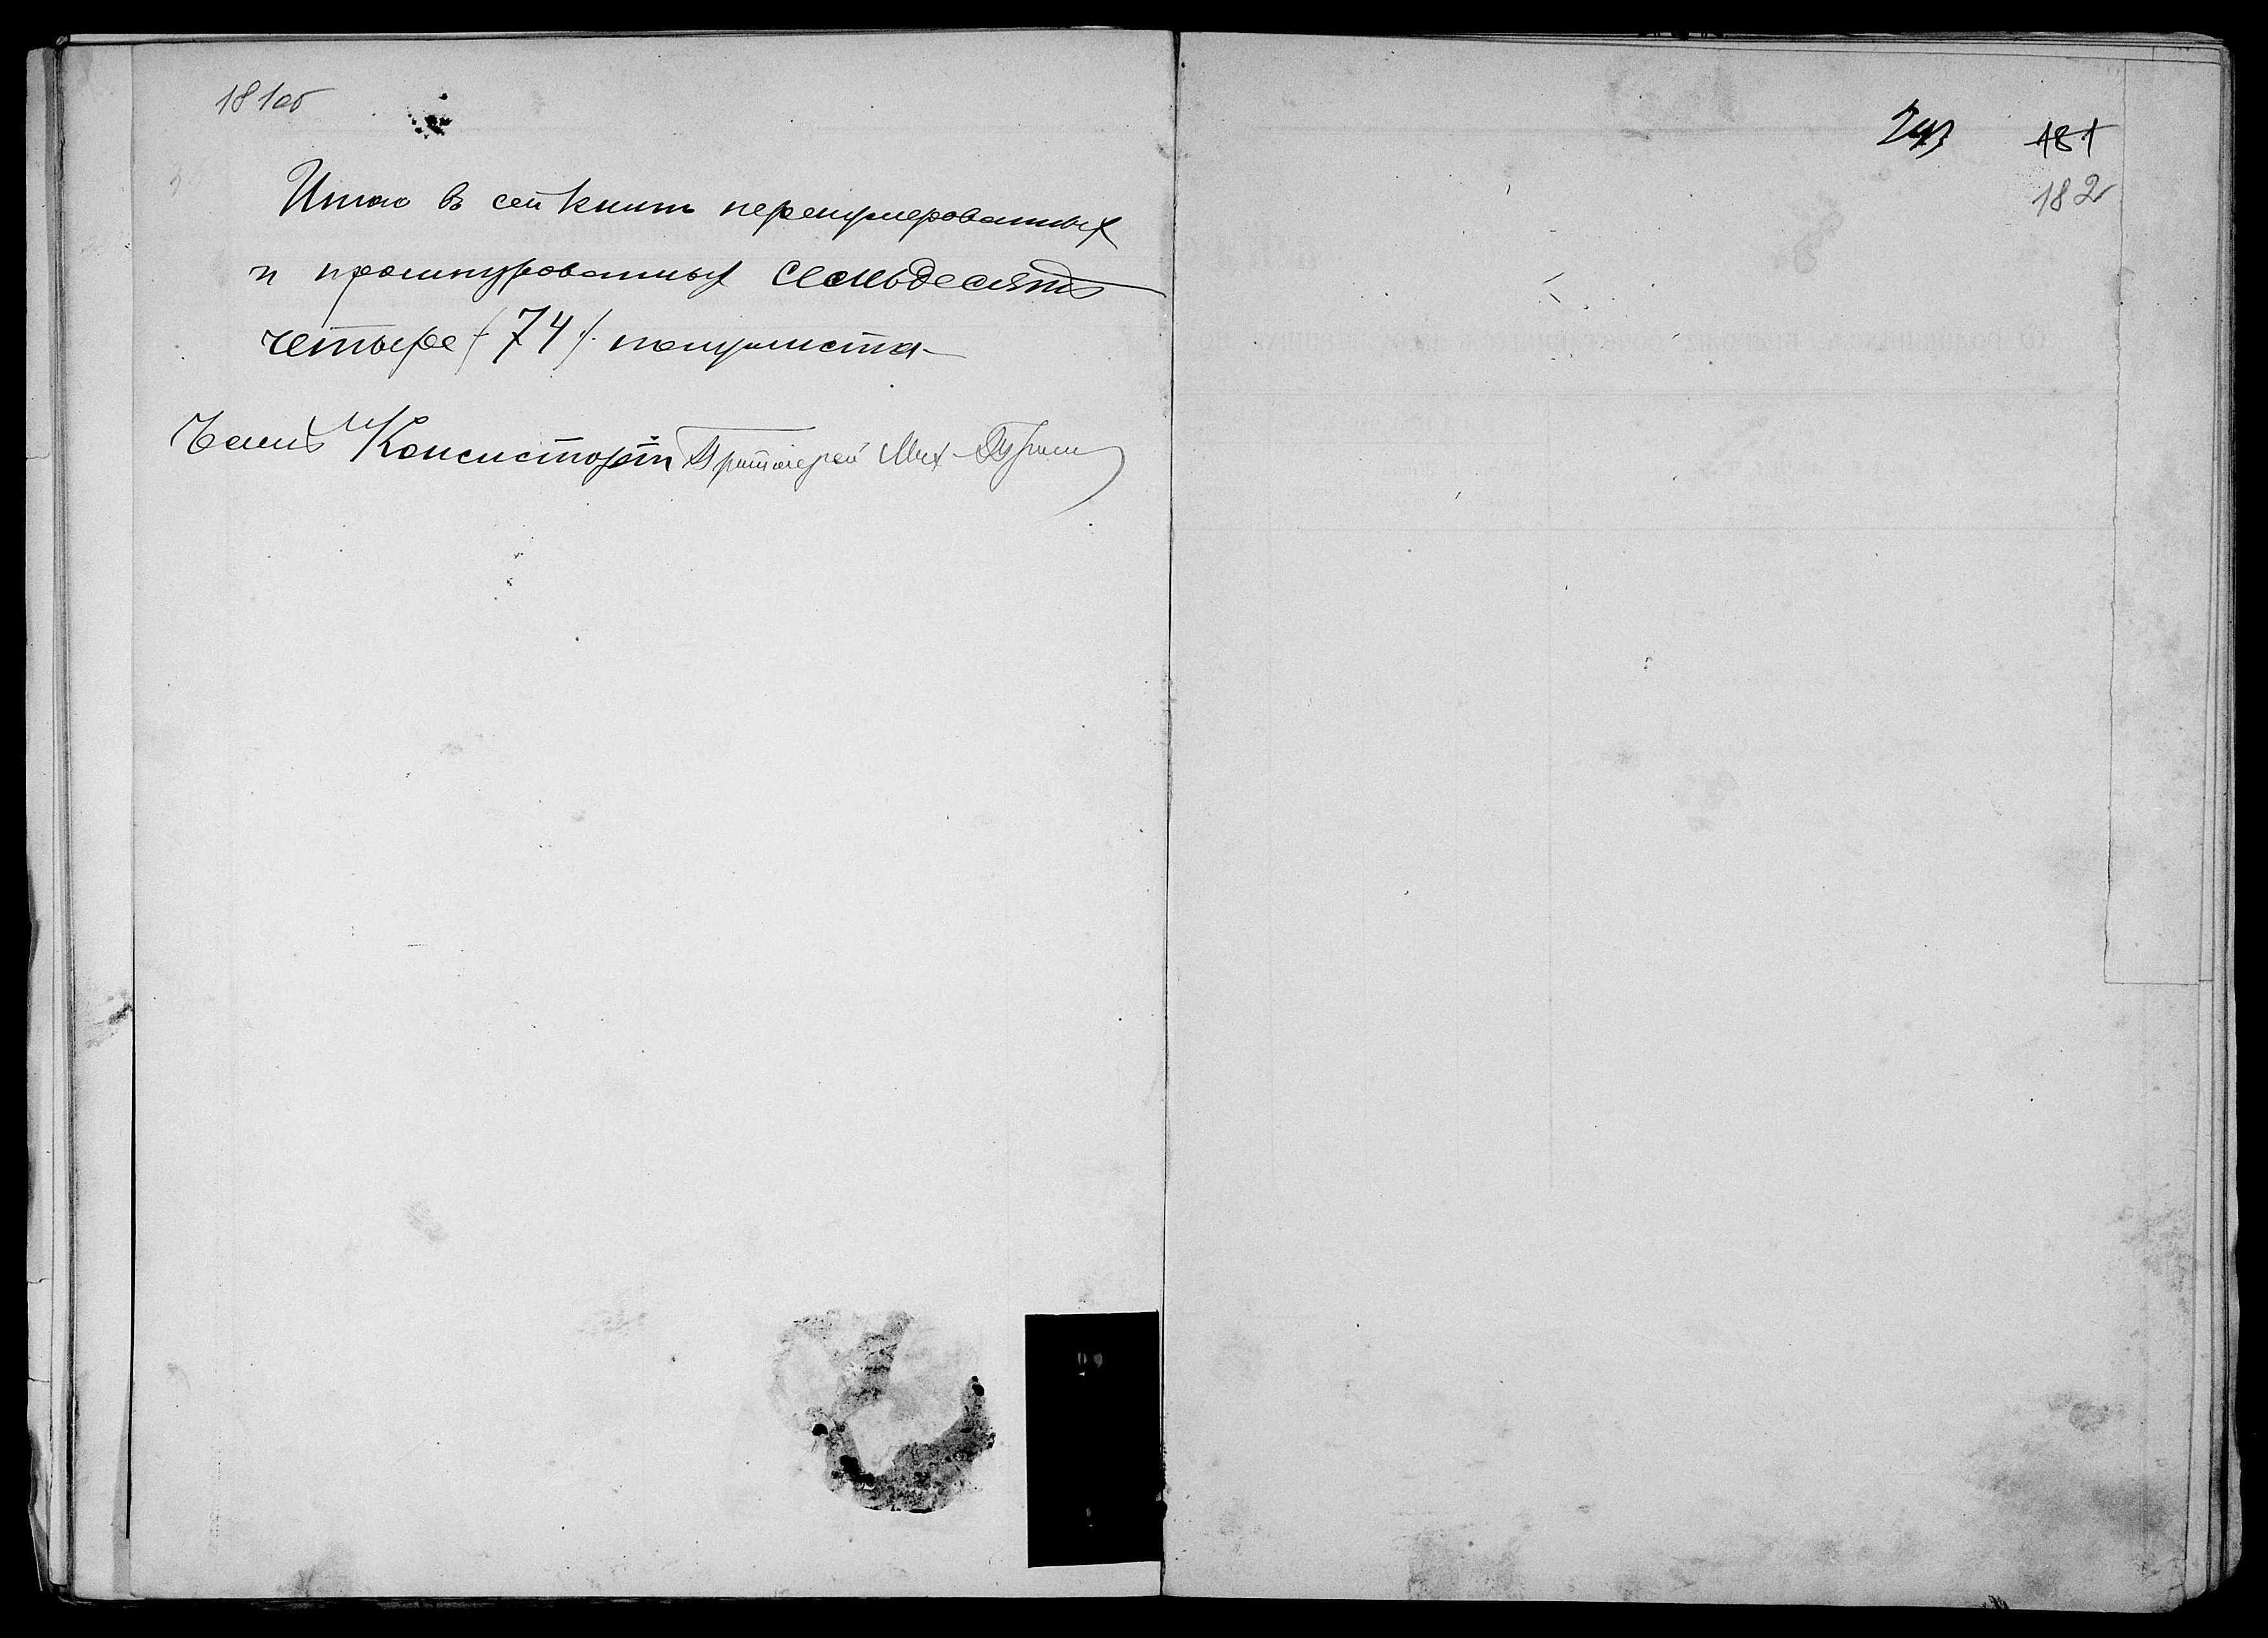 181об
Итого въ сей книгѣ перенумерованныхъ
и прошнурованныхъ Семьдесятъ
четыре (74). полулиста
Членъ Консисторіи Протоіерей Мих.
243 181
182